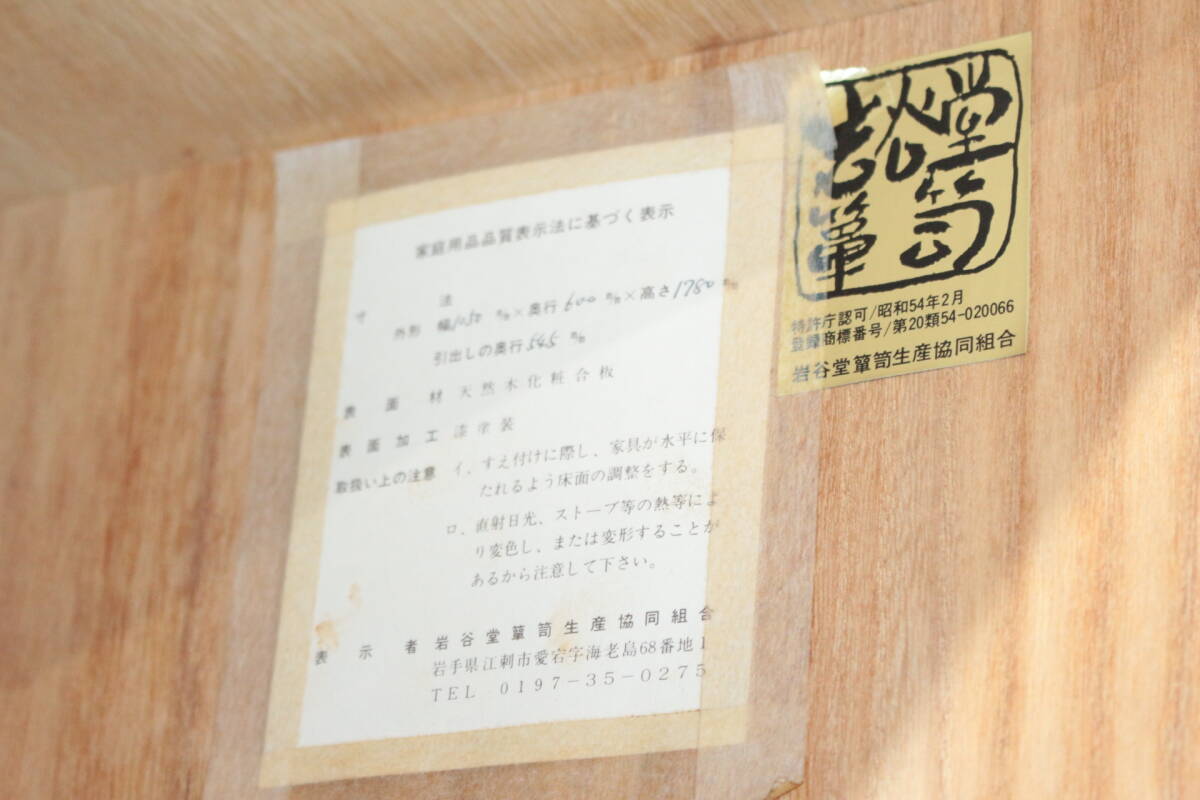 家庭用品品質表示法に基づく表示
寸法
外形 幅1050 m/m×奥行600 m/m×高さ1780 m/m
引出しの奥行545 m/m
表面材 天然木化粧合板
表面加工 漆塗装
取扱い上の注意 イ、すえ付けに際し、家具が水平に保
たれるよう床面の調整をする。
ロ、直射日光、ストーブ等の熱等によ
り変色し、または変形することが
あるから注意して下さい。
表示者 岩谷堂簞笥生産協同組合
岩手県江刺市愛宕字海老島68番地1
TEL 0197-35-0275
岩谷堂簞笥
特許庁認可/昭和54年2月
登録商標番号/第20類54-020066
岩谷堂簞笥生産協同組合